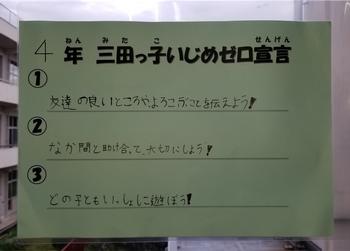 ねん みたこ せんげん
4年 三田っ子いじめゼロ宣言
①
友達の良いところやよろこぶことを伝えよう!
②
なか間と助け合って、大切にしよう!
③
どの子ともいっしょに遊ぼう!